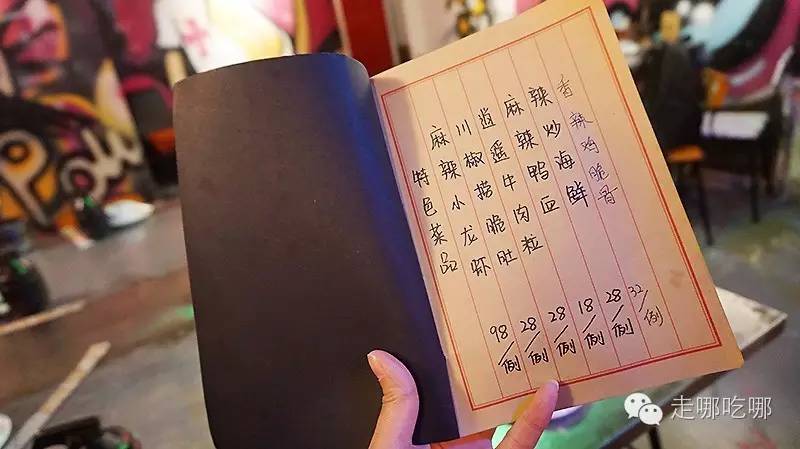 特色菜品
麻辣小龙虾 98/例
川椒捞脆肚 28/例
逍遥牛肉粒 28/例
麻辣鸭血 18/例
辣炒海鲜 28/例
香辣鸡脆骨 32/例
走哪吃哪